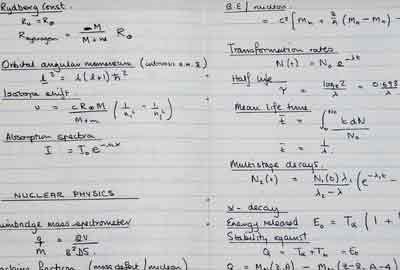 Rydberg Const.
R∞ = R∞
R hydrogen = M / M+m R∞
Orbital angular momentum
l² = l(l+1)ħ²
Isotope shift.
ν = cR∞M / M+m (1/n² - 1/n²)
Absorption spectra
I = I₀e^-nx
NUCLEAR PHYSICS
mass spectrometer
q/M = 2V / B²DS
fraction (mass defect / nucleon)
B.E / nucleon
= c² [Mn + Z/A (MH - Mn) -
Transformation rates
N(t) = N₀ e^-λt
Half life
τ = loge2 / λ = 0.693
Mean life time
t̄ = ∫ t dN / N₀
t̄ = 1/λ
Multistage decays.
N₂(t) = N₁(0)λ₁ / λ₂ - λ₁ (e^-λ₁t -
α - decay
Energy released E₀ = Tα (1 +
Stability against
Q = Tα + Th = E₀
Q = M (Z,A) - M (Z-2, A-4)